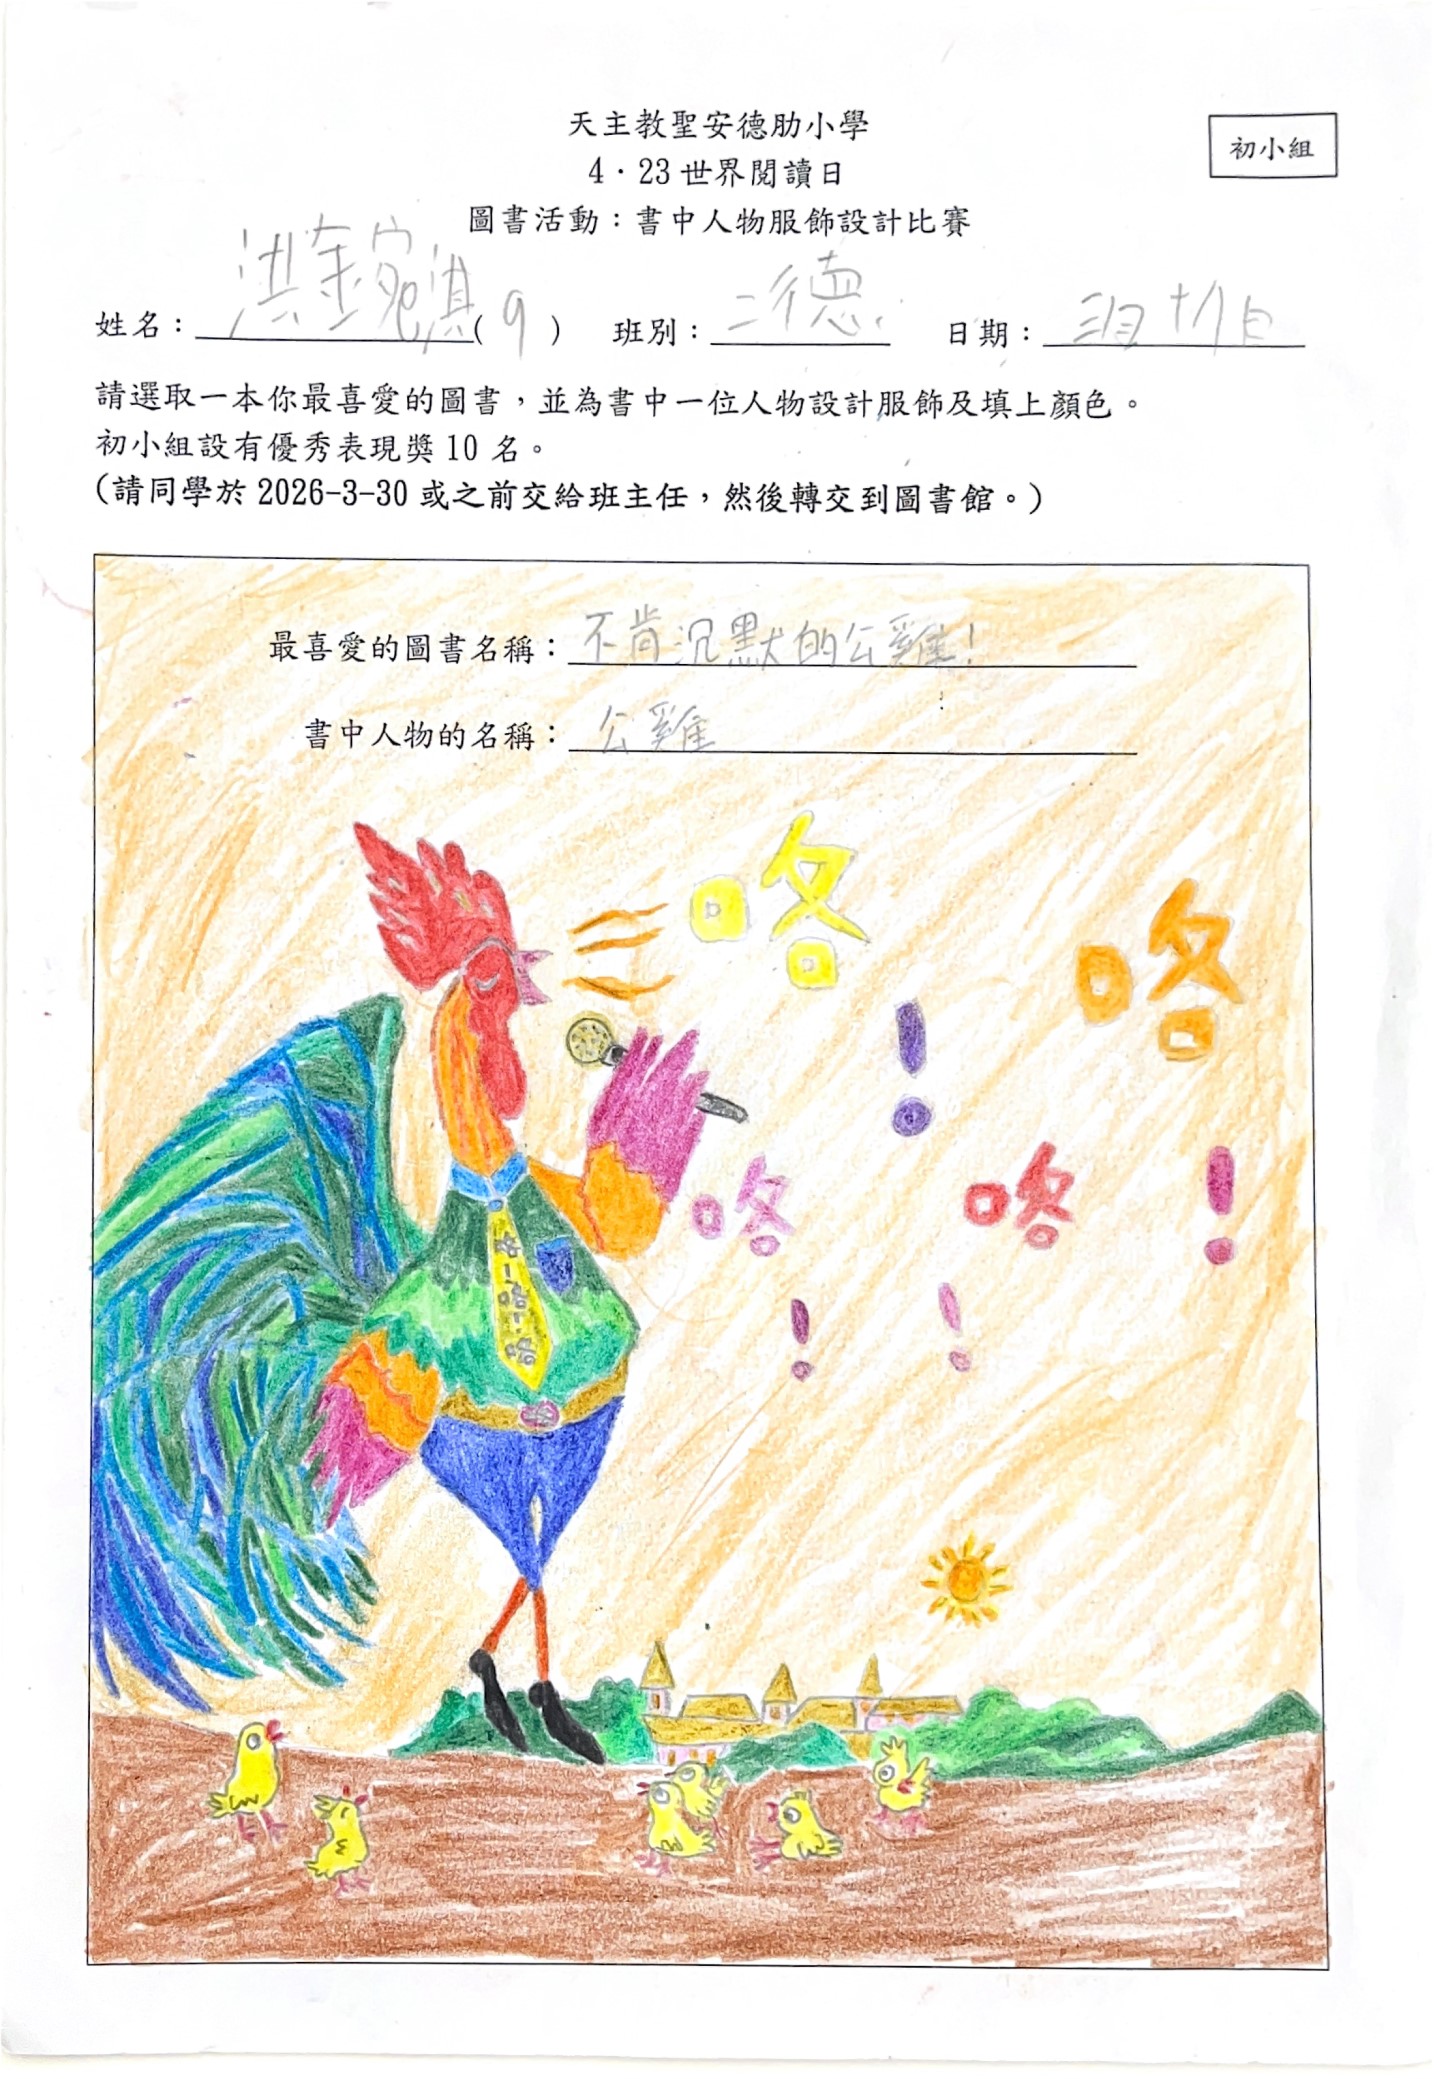 天主教聖安德肋小學
初小組
4．23 世界閱讀日
圖書活動：書中人物服飾設計比賽
姓名：洪金宛淇( 9 ) 班別：二德 日期：三月十八日
請選取一本你最喜愛的圖書，並為書中一位人物設計服飾及填上顏色。
初小組設有優秀表現獎 10 名。
(請同學於 2026-3-30 或之前交給班主任，然後轉交到圖書館。)
最喜愛的圖書名稱：不肯沉默的公雞！
書中人物的名稱：公雞
咯
咯！
咯！
咯！
！
咯！咯！咯